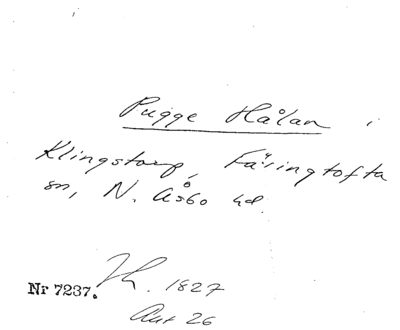 Pugge Hålan i
Klingstorp, Färingtofta
sn, N. Åsbo hd.
Nr 7237. 1827
Aut 26